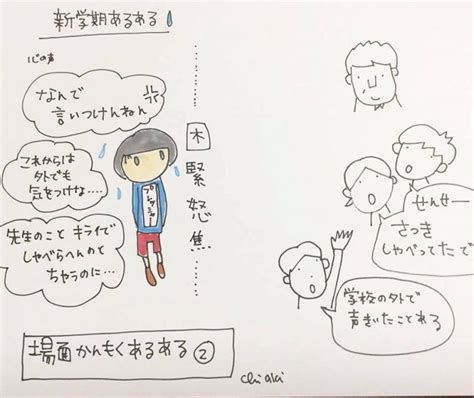 新学期あるある
心の声
なんで
言いつけんねん
これからは
外でも
気をつけな…
先生のこと キライで
しゃべらへんのと
ちゃうのに…
プレッシャー
困
緊
怒
焦
せんせー
さっき
しゃべってたで
学校の外で
声きいたことある
場面かんもくあるある②
chiaki